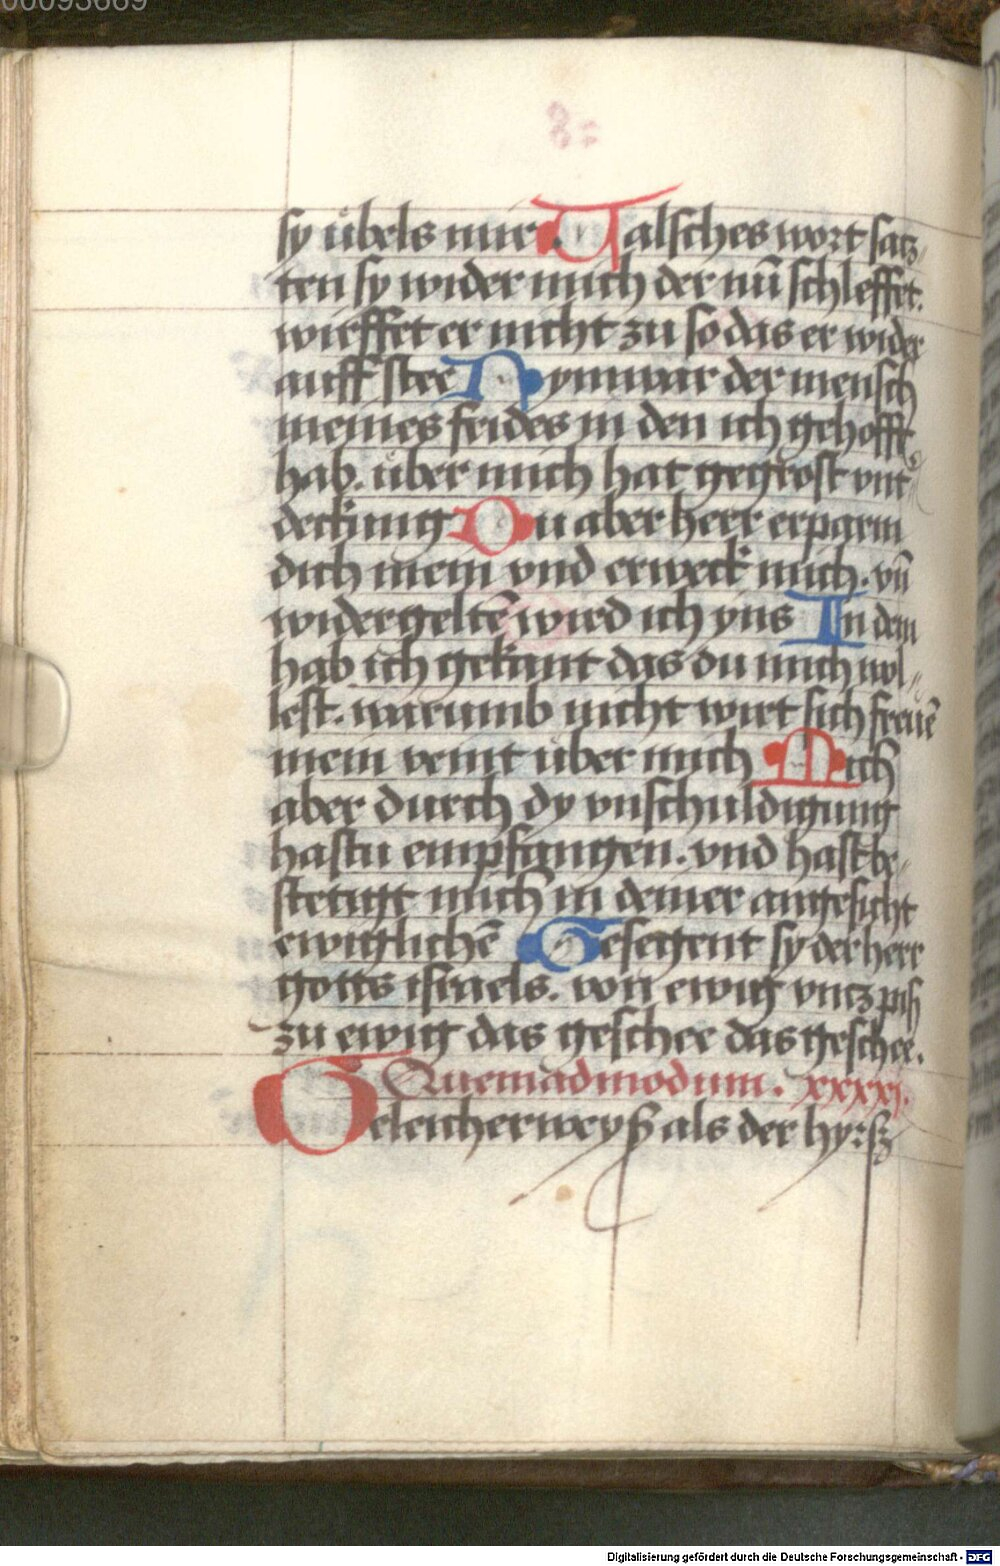 00093669
sy übels mir. Valsches wort satz-
ten sy wider mich der nū schleffet.
wirffet er nicht zu so das er wider
auff stee Nym war der mensch
meines frides in den ich gehofft
hab. über mich hat gegrost vnt'
deckung Du aber herr erparm
dich mein vnd erweck mich. vn̄
widergeltē wird ich yns In dem
hab ich gekant das du mich wol-
lest. warumb nicht wirt sich freuē
mein veint über mich Mich
aber durch dy vnschuldigung
hastu empfangen. vnd hast be-
stetigt mich in deiner angesicht
ewiglichē Gesegent sy der herr
gotts israels. von ewig vntz pis
zu ewig das geschee das geschee.
Quemadmodum. xxxxi.
Geleicherweyß als der hyrsz
Digitalisierung gefördert durch die Deutsche Forschungsgemeinschaft - DFG